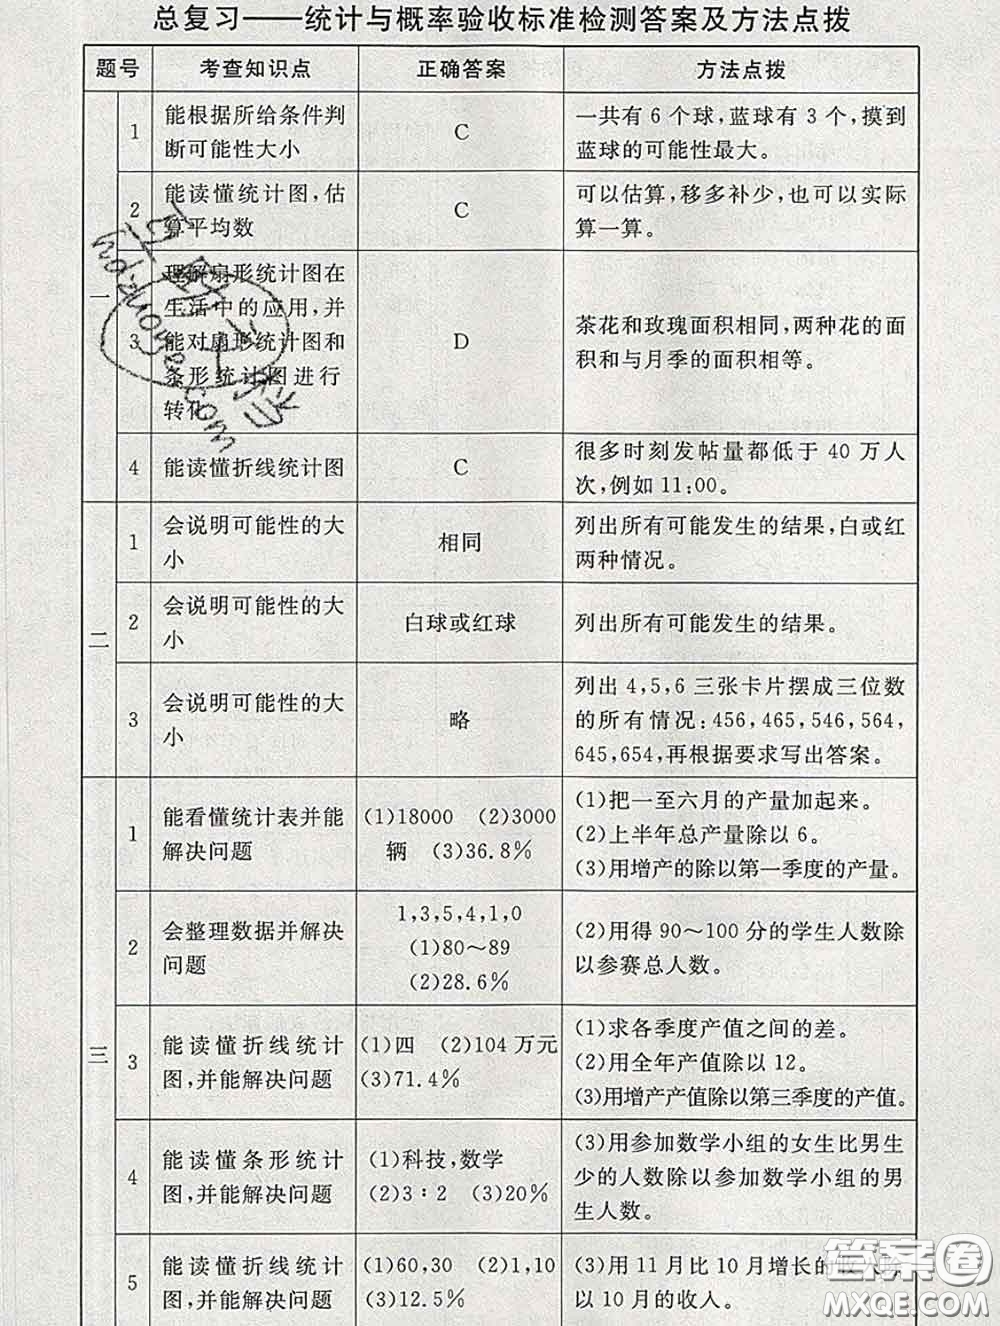 总复习——统计与概率验收标准检测答案及方法点拨
题号 考查知识点 正确答案 方法点拨
一
1 能根据所给条件判
断可能性大小
C
一共有 6 个球,蓝球有 3 个,摸到
蓝球的可能性最大。
2 能读懂统计图,估
算平均数
C
可以估算,移多补少,也可以实际
算一算。
3 理解扇形统计图在
生活中的应用,并
能对扇形统计图和
条形统计图进行
转化
D
茶花和玫瑰面积相同,两种花的面
积和与月季的面积相等。
4 能读懂折线统计图
C
很多时刻发帖量都低于 40 万人
次,例如 11:00。
二
1 会说明可能性的大
小
相同
列出所有可能发生的结果,白或红
两种情况。
2 会说明可能性的大
小
白球或红球
列出所有可能发生的结果。
3 会说明可能性的大
小
略
列出 4,5,6 三张卡片摆成三位数
的所有情况:456,465,546,564,
645,654,再根据要求写出答案。
三
1 能看懂统计表并能
解决问题
(1)18000 (2)3000
辆 (3)36.8%
(1)把一至六月的产量加起来。
(2)上半年总产量除以 6。
(3)用增产的除以第一季度的产量。
2 会整理数据并解决
问题
1,3,5,4,1,0
(1)80～89
(2)28.6%
(2)用得 90～100 分的学生人数除
以参赛总人数。
3 能读懂折线统计
图,并能解决问题
(1)四 (2)104 万元
(3)71.4%
(1)求各季度产值之间的差。
(2)用全年产值除以 12。
(3)用增产产值除以第三季度的产值。
4 能读懂条形统计
图,并能解决问题
(1)科技,数学
(2)3∶2 (3)20%
(3)用参加数学小组的女生比男生
少的人数除以参加数学小组的男
生人数。
5 能读懂折线统计
图,并能解决问题
(1)60,30 (2)1,10
(3)12.5%
(3)用 11 月比 10 月增长的
以 10 月的收入。
答案圈
MXQE.COM